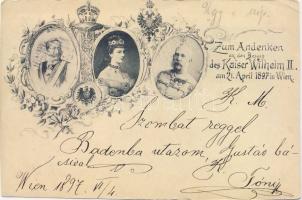 Zum Andenken
an den Besuch
des Kaiser Wilhelm II.
am 21. April 1897 in Wien.
K. M.
Szombat reggel
Badenba utazom, Gusztáv bá-
csival.
Wien 1897 IV/4